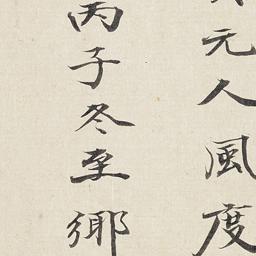 元人風度
丙子冬至鄉